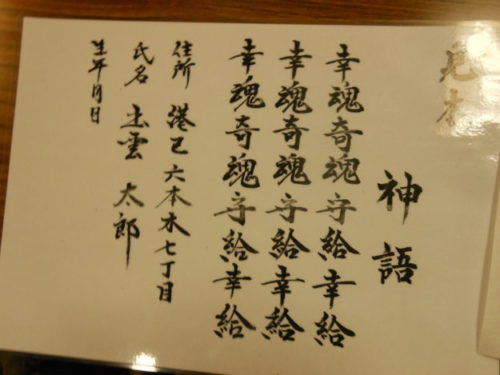 見本
神語
幸魂奇魂守給幸給
幸魂奇魂守給幸給
幸魂奇魂守給幸給
住所 港区六本木七丁目
氏名 出雲 太郎
生年月日